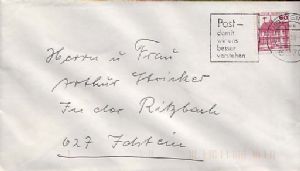 Post –
damit
wir uns
besser
verstehen
Herrn u Frau
Arthur Stricker
In der Ritzbach
627 Idstein